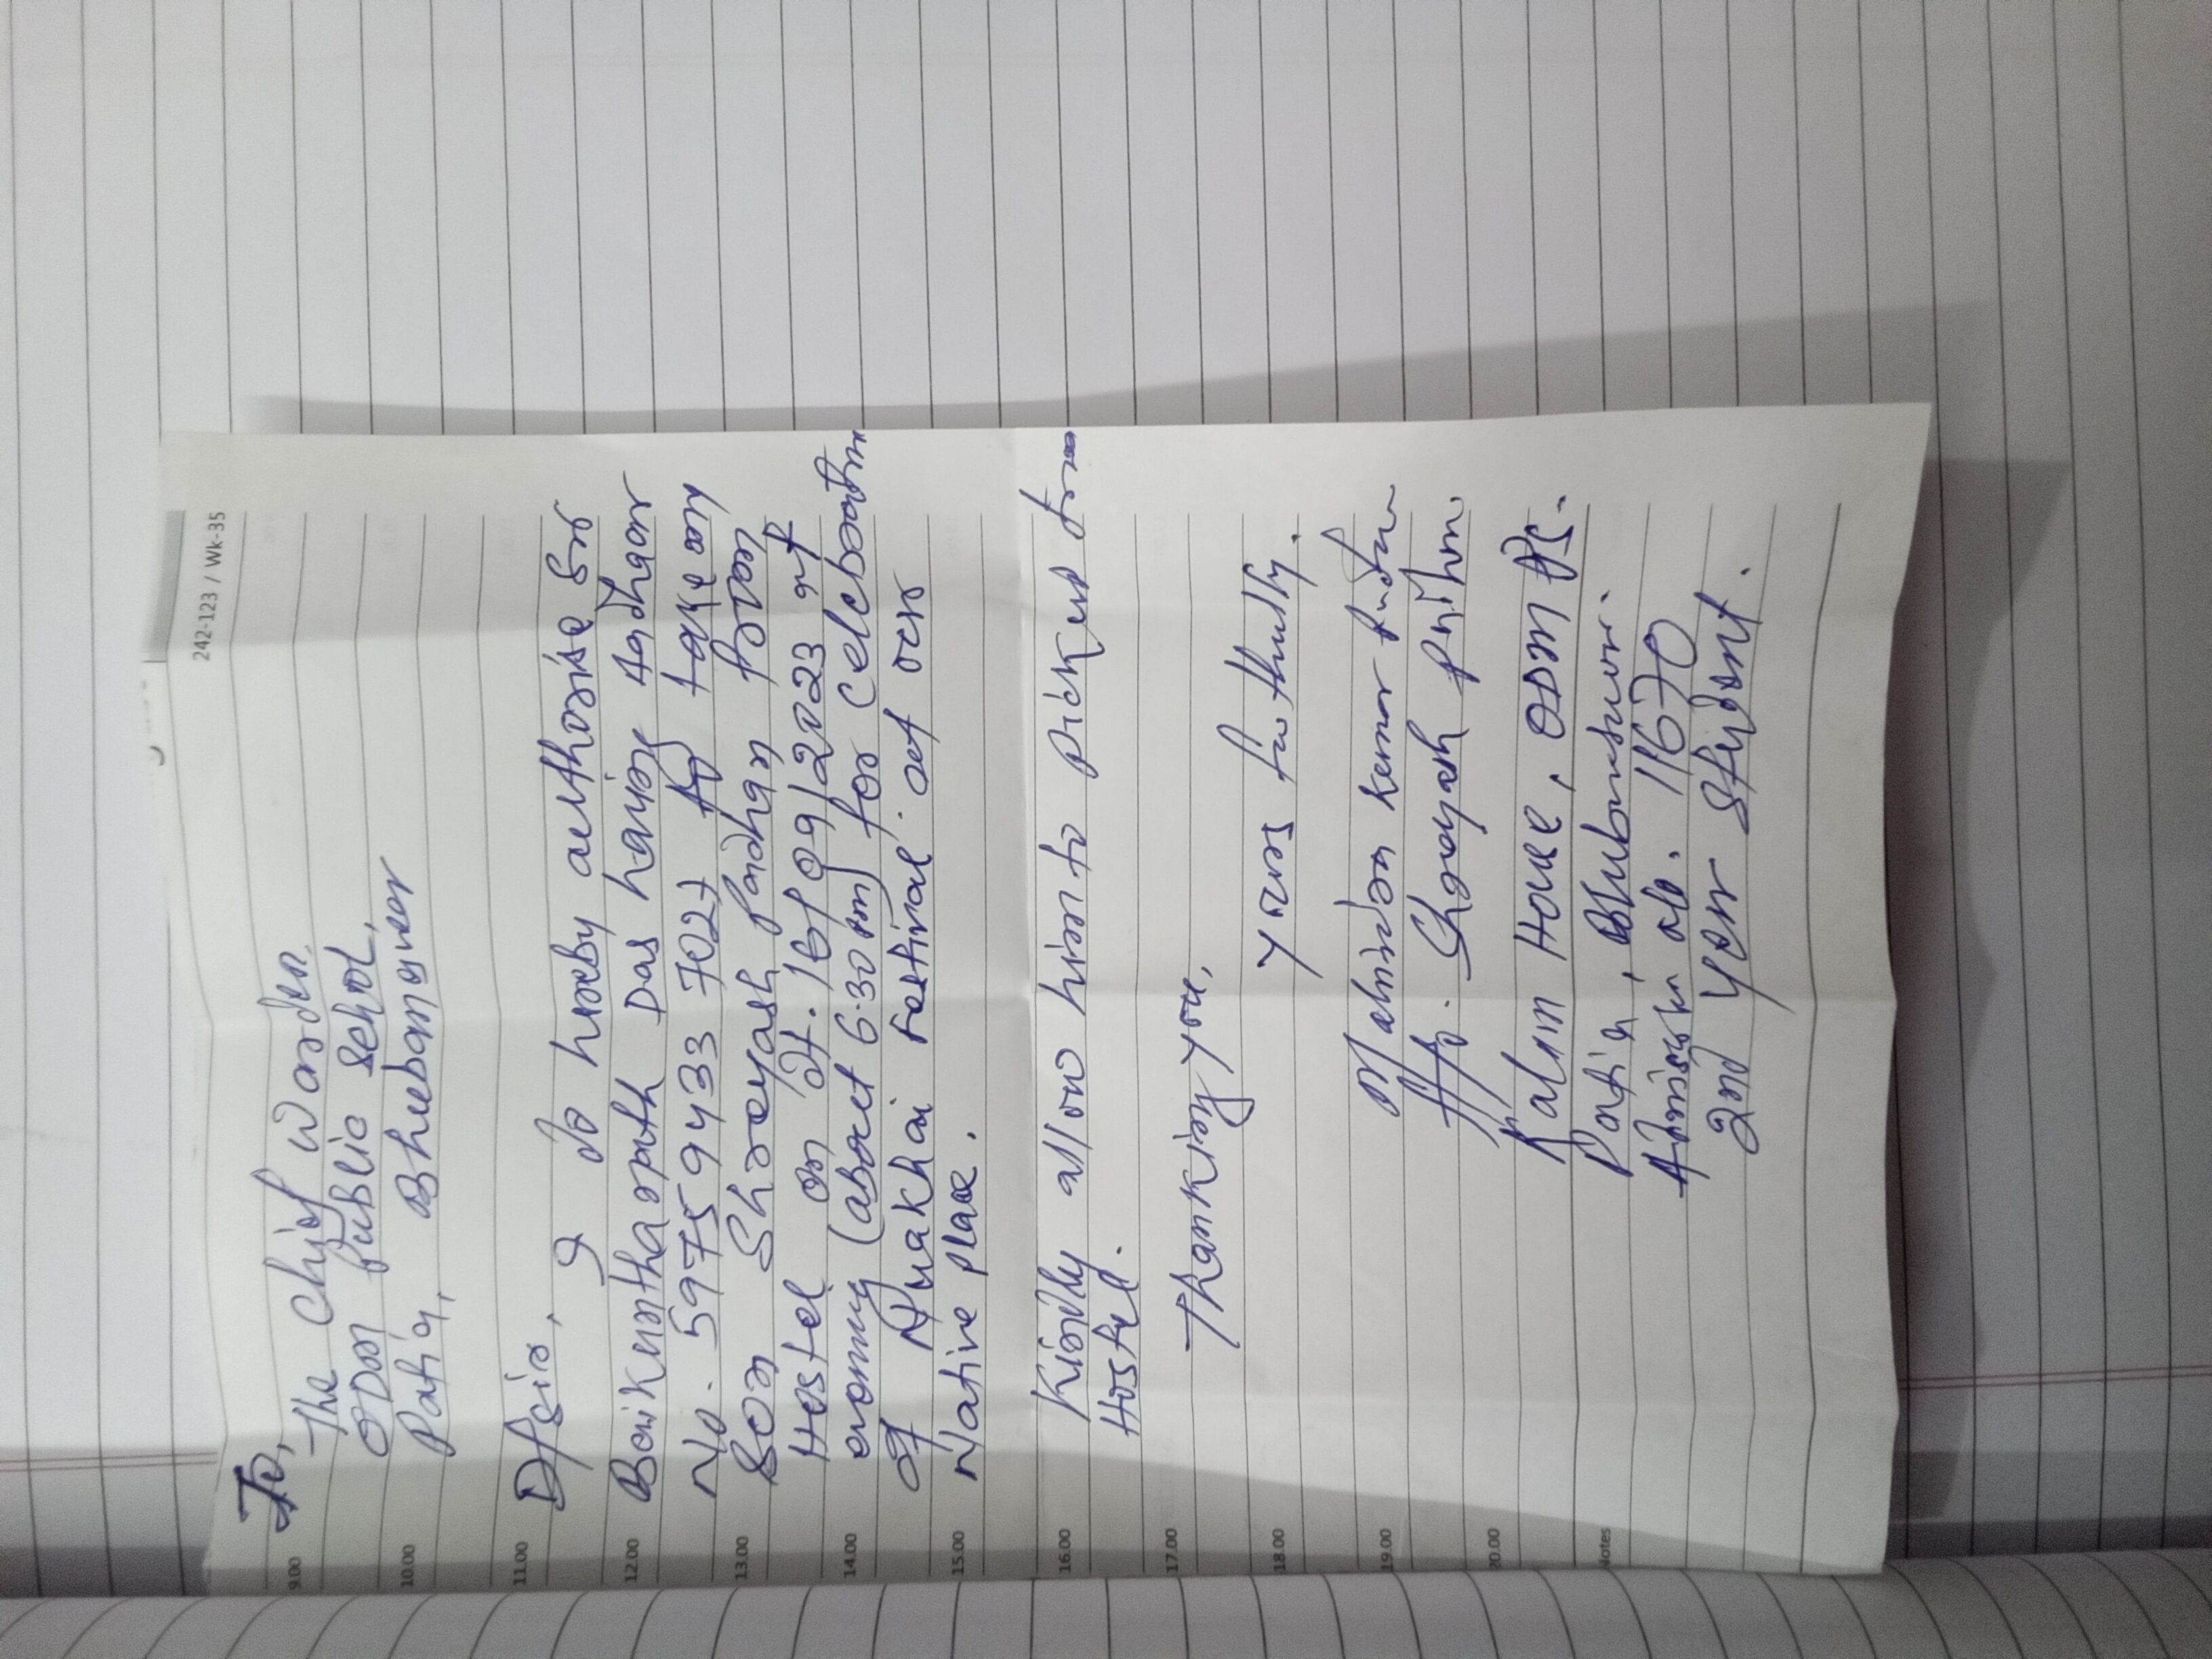 242-123 / Wk-35
To,
The Chief Warden
ODM Public School,
Patia, Bhubaneswar
D/Sir,
I do hereby authorise Sri
Baikunthanath Das having Aadhaar
No. 5975 9433 7027 to take my
Son Shreeyash Pradhan from
Hostel on dt. 16/09/2023 at
evening (about 6.30 pm) for celebration
of Nuakhai Festival at our
Native place.
Kindly allow him to pickup from
Hostel.
Thanking you,
Yours faithfully.
Kumar
F/o. Shreyash
Kalam House, ODM PS.
Patia, Bhubaneswar.
Admission No. 11670
2nd Year Student.
9.00
10.00
11.00
12.00
13.00
14.00
15.00
16.00
17.00
18.00
19.00
20.00
Notes